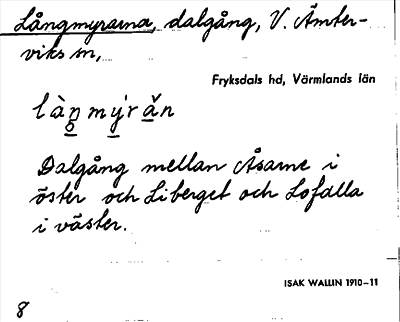 Långmyrarna, dalgång, V. Ämter-
viks sn,
Fryksdals hd, Värmlands län
làn̥my̍rǎn
Dalgång mellan Åsarne i
öster och Liberget och Lofalla
i väster.
ISAK WALLIN 1910–11
8